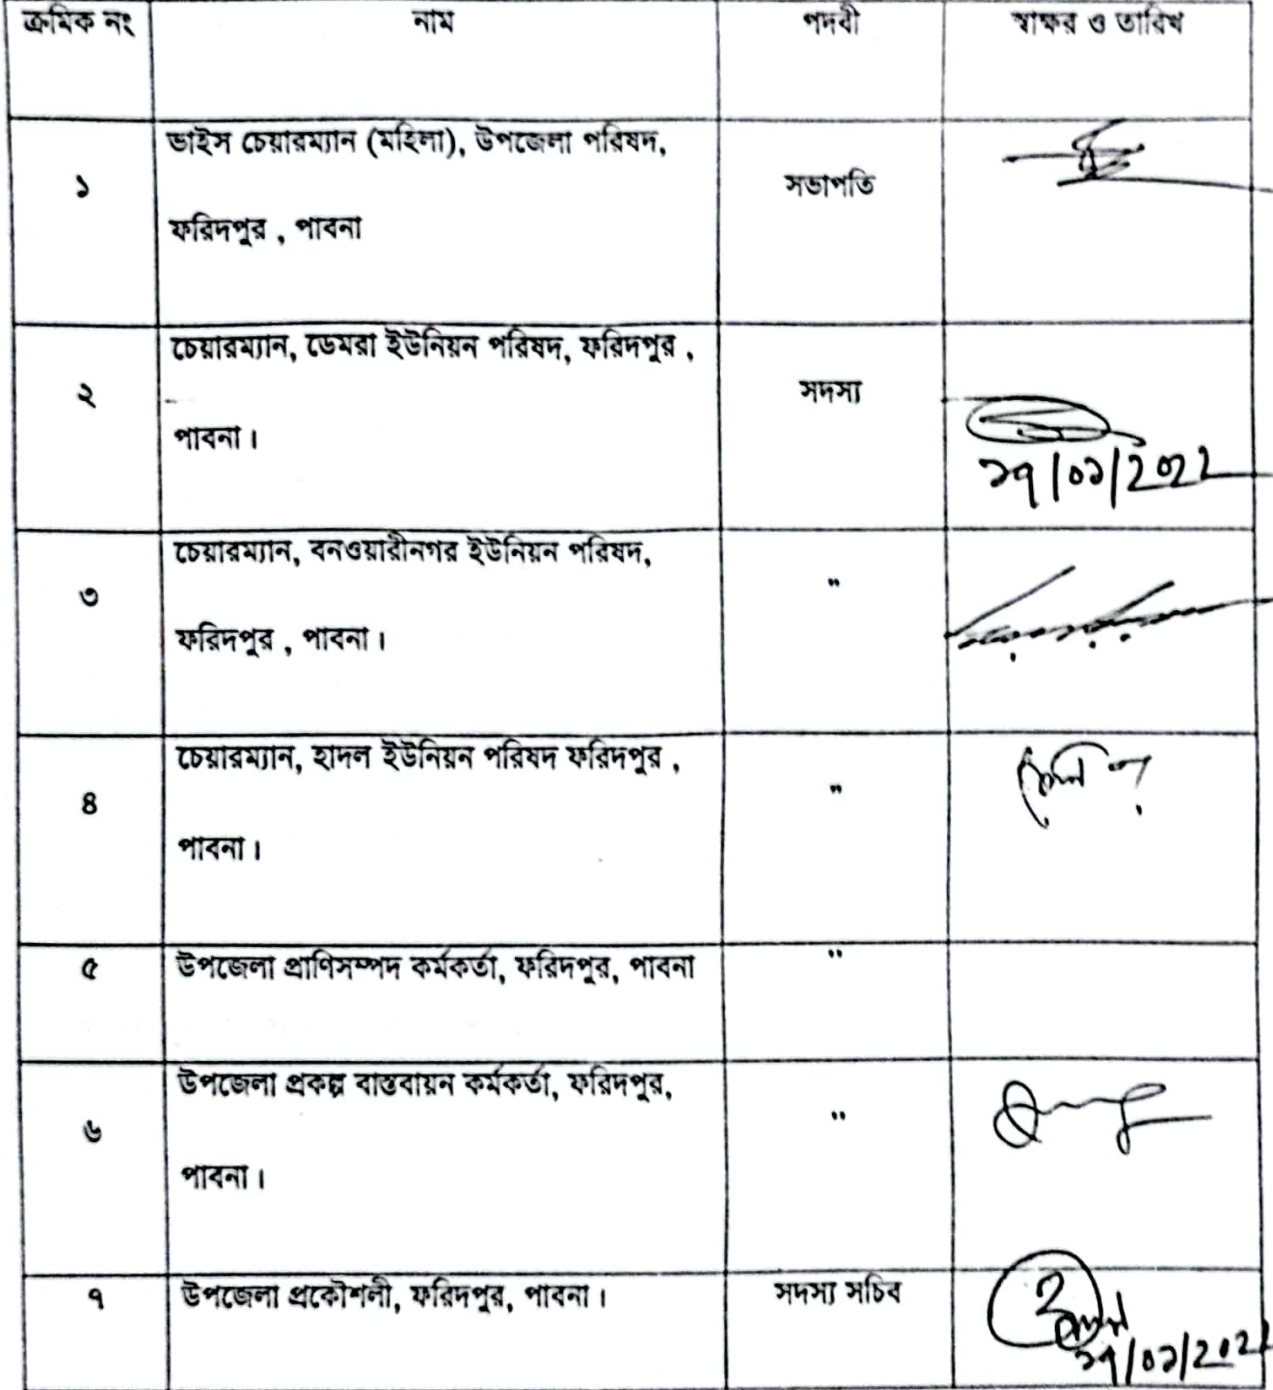 ক্রমিক নং নাম পদবী স্বাক্ষর ও তারিখ
ভাইস চেয়ারম্যান (মহিলা), উপজেলা পরিষদ,
১ সভাপতি
ফরিদপুর , পাবনা
চেয়ারম্যান, ডেমরা ইউনিয়ন পরিষদ, ফরিদপুর ,
২ সদস্য
পাবনা ।
১৭/০১/2022
চেয়ারম্যান, বনওয়ারীনগর ইউনিয়ন পরিষদ,
৩ "
ফরিদপুর , পাবনা ।
চেয়ারম্যান, হাদল ইউনিয়ন পরিষদ ফরিদপুর ,
৪ "
পাবনা ।
৫ উপজেলা প্রাণিসম্পদ কর্মকর্তা, ফরিদপুর, পাবনা "
উপজেলা প্রকল্প বাস্তবায়ন কর্মকর্তা, ফরিদপুর,
৬ "
পাবনা ।
৭ উপজেলা প্রকৌশলী, ফরিদপুর, পাবনা । সদস্য সচিব
১৭/০১/2022